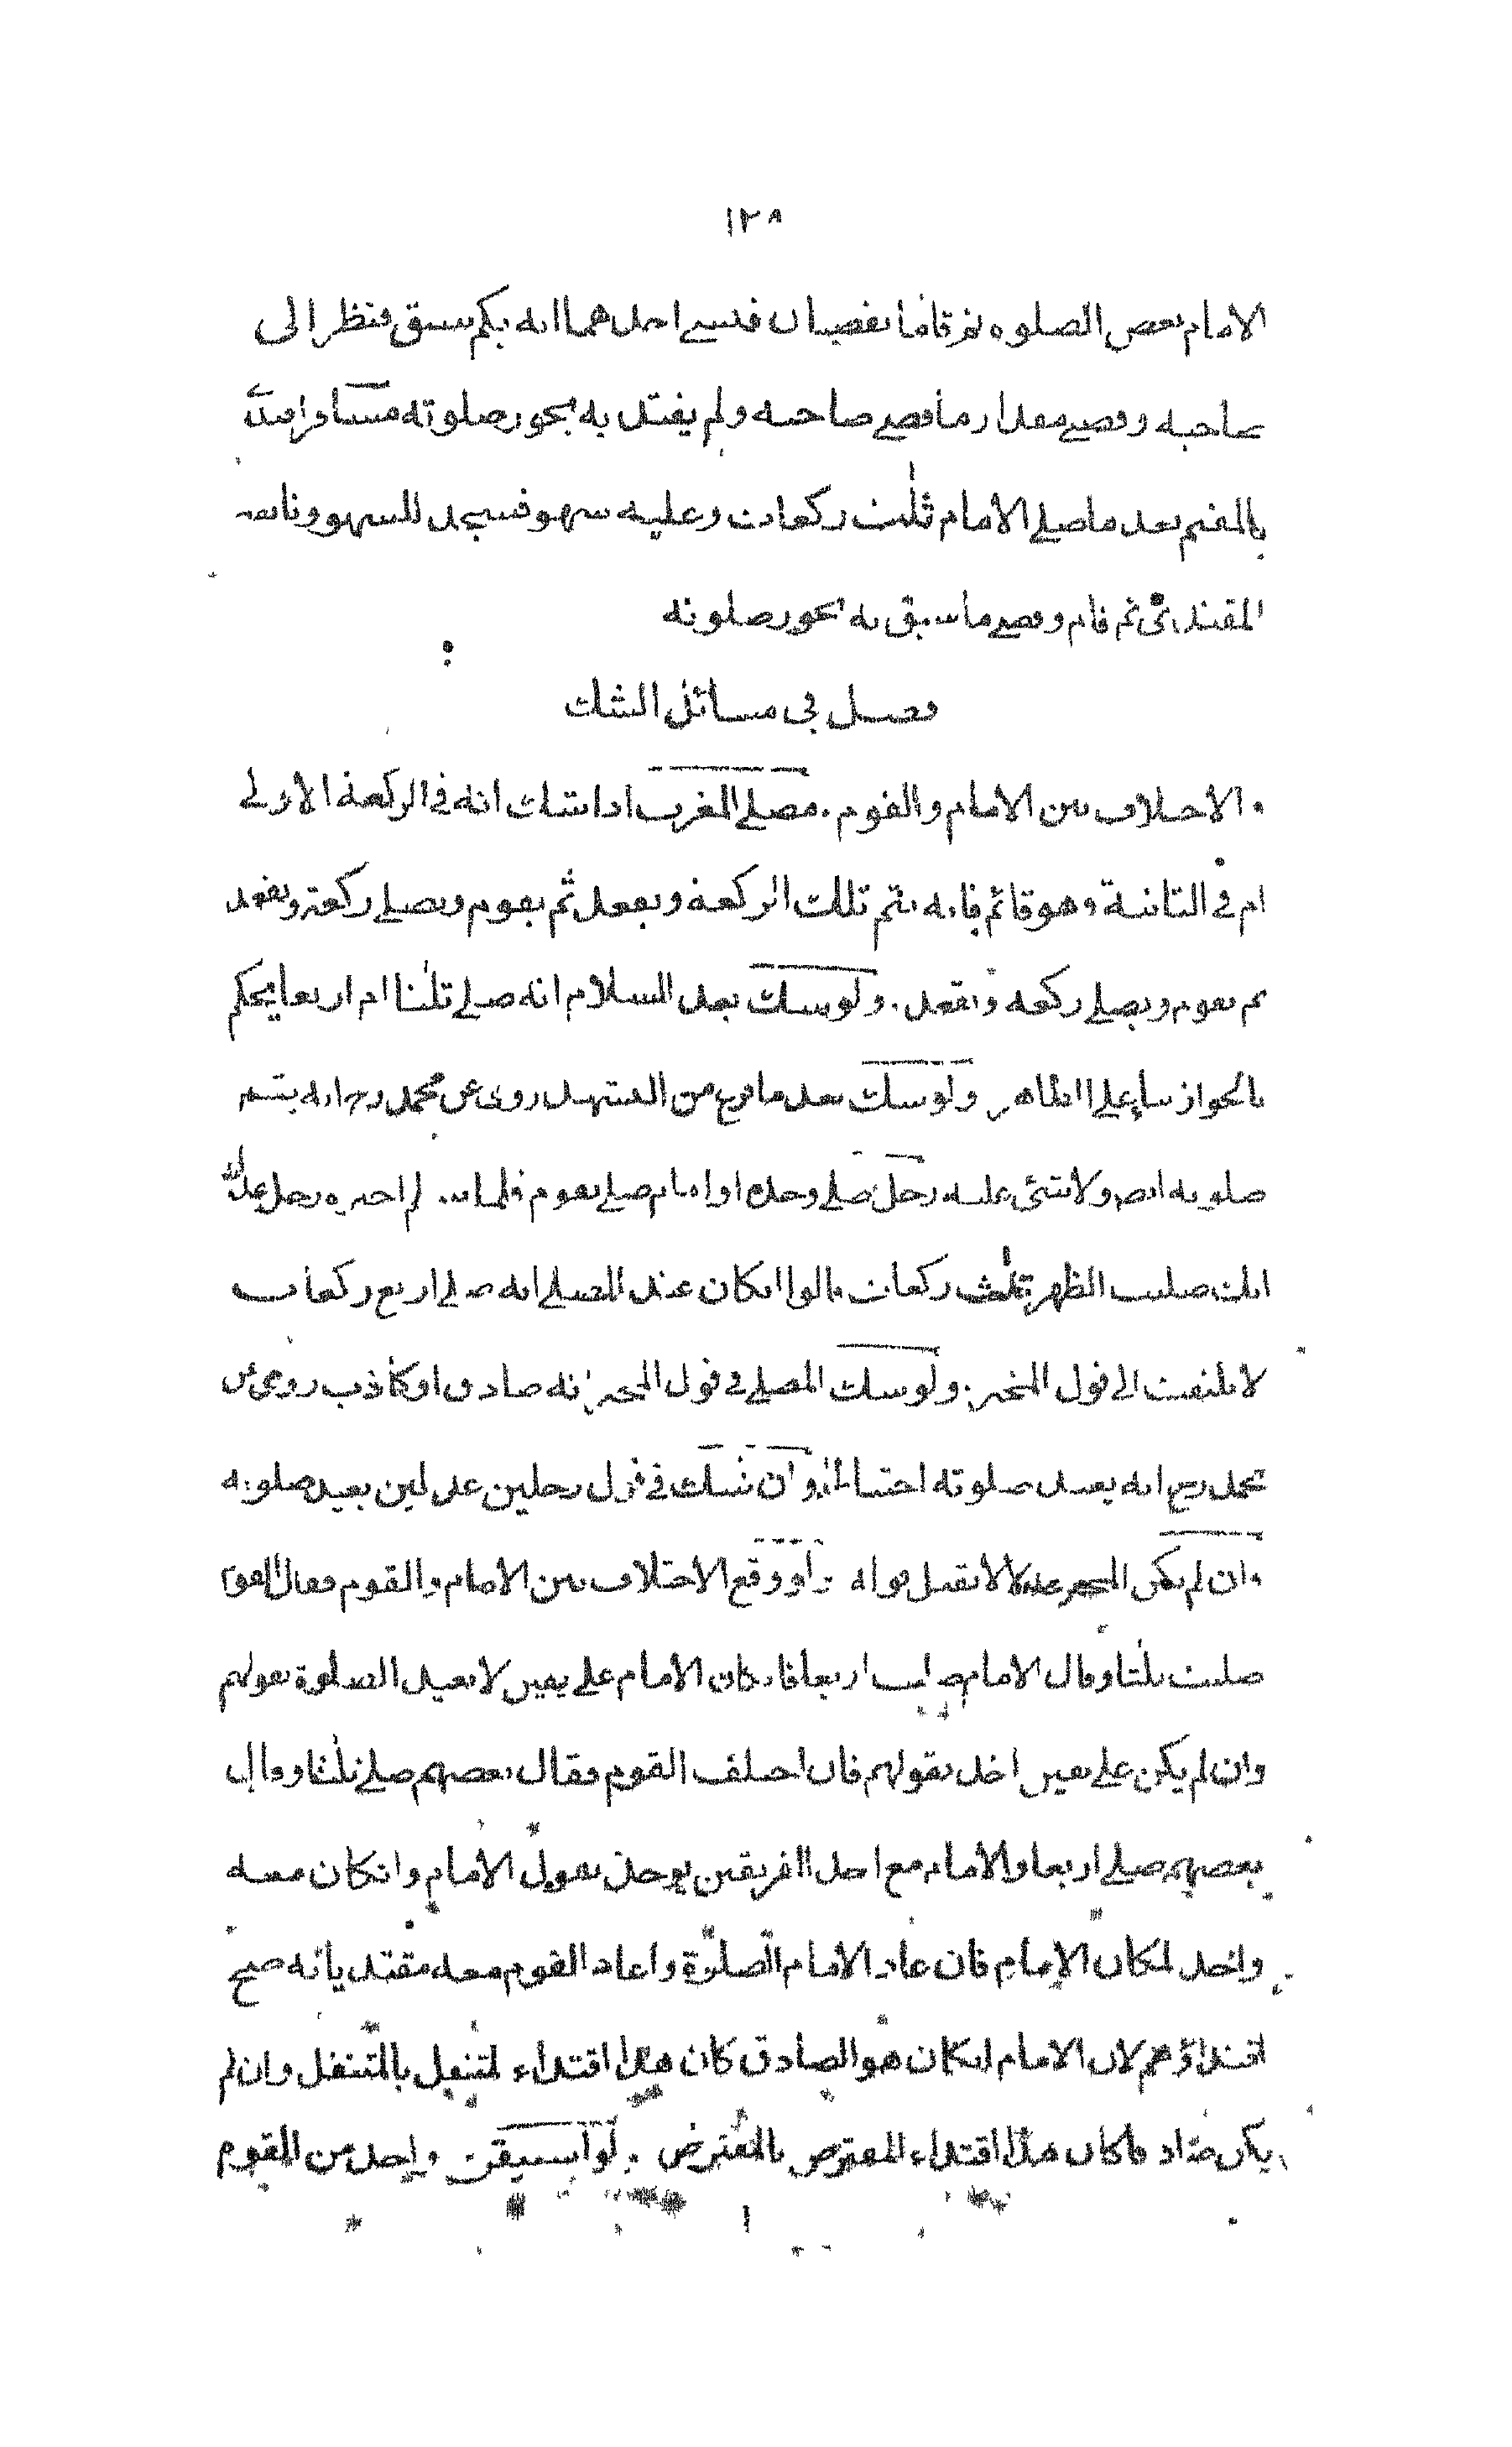 ١٢٨
الامام بعض الصلوة ثم قاما يقضيان فنسي احدهما انه بكم سبق فنظر الى
صاحبه وقضى مقدار ما قضى صاحبه ولم يقتد به يجوز صلوته مسافر اقتدى
بالمقيم بعد ما صلى الامام ثلث ركعات وعليه سهو فسجد للسهو وتابعه
المقتدى ثم قام وقضى ما سبق به يجوز صلوته
فصل في مسائل الشك
والاختلاف بين الامام والقوم. مصلى المغرب اذا شك انه في الركعة الاولى
ام في الثانية وهو قائم فانه يتم تلك الركعة ويقعد ثم يقوم ويصلى ركعة ويقعد
ثم يقوم ويصلى ركعة ويقعد. ولو شك بعد السلام انه صلى ثلثا ام اربعا يحكم
بالجواز بناء على الظاهر ولو شك بعد ما فرغ من التشهد روى عن محمد رح انه يتم
صلوته ايضا ولا شئ عليه رجل صلى وحده او امام صلى بقوم فلما سلم اخبره رجل عدل
انك صليت الظهر ثلث ركعات قالوا ان كان عند المصلى انه صلى اربع ركعات
لا يلتفت الى قول المخبر. ولو شك المصلى في قول المخبر انه صادق او كاذب روى عن
محمد رح انه يعيد صلوته احتياطا وان شك في قول رجلين عدلين يعيد صلوته
وان لم يكن المخبر عدلا لا يقبل قوله ولو وقع الاختلاف بين الامام والقوم فقال القوم
صليت ثلثا وقال الامام صليت اربعا فان كان الامام على يقين لا يعيد الصلوة بقولهم
وان لم يكن على يقين اخذ بقولهم فان اختلف القوم فقال بعضهم صلى ثلثا وقال
بعضهم صلى اربعا والامام مع احد الفريقين يوخذ بقول الامام وان كان معه
واحد لمكان الامام فان عاد الامام الصلوة واعاد القوم معه مقتديا به صح
اقتداؤهم لان الامام ان كان هو الصادق كان هذا اقتداء المتنفل بالمتنفل وان لم
يكن صادقا كان هذا اقتداء المفترض بالمفترض. ولو استيقن واحد من القوم